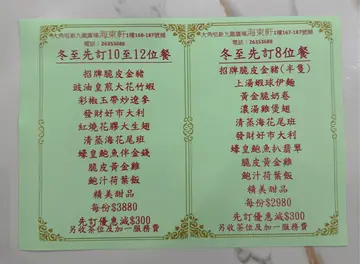 大角咀新九龍廣場海東軒1樓160-187號舖
電話：26353688
冬至先訂10至12位餐
招牌脆皮金豬
豉油皇煎大花竹蝦
彩椒玉帶炒遼參
發財好市大利
紅燒花膠大生翅
清蒸海花尾班
蠔皇鮑魚伴金錢
脆皮黃金雞
鮑汁荷葉飯
精美甜品
每份$3880
先訂優惠減$300
另收茶位及加一服務費
大角咀新九龍廣場海東軒1樓167-187號舖
電話：26353688
冬至先訂8位餐
招牌脆皮金豬(半隻)
上湯蝦球伊麵
黃金脆奶卷
濃湯雞煲翅
發財好市大利
清蒸海花尾班
蠔皇鮑魚扒翡翠
脆皮黃金雞
鮑汁荷葉飯
精美甜品
每份$2980
先訂優惠減$300
另收茶位及加一服務費